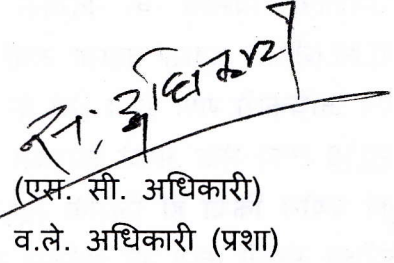 स. अधिकारी
(एस. सी. अधिकारी)
व.ले. अधिकारी (प्रशा)